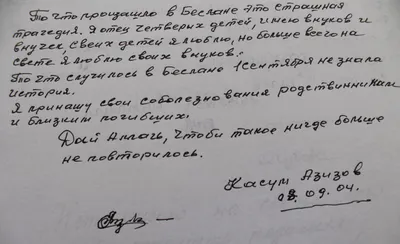 То что произашло в Беслане это страшная
трагедия. Я отец четверых детей, имею внуков и
внучек, своих детей я люблю, но больше всего на
свете я люблю своих внуков.
То что случилось в Беслане 1 сентября не знала
история.
Я принашу свои соболезнования родственникам
и близким погибших.
Дай Аллагь, чтоби такое нигде больше
не повторилось.
Касум Азизов
08.09.04.